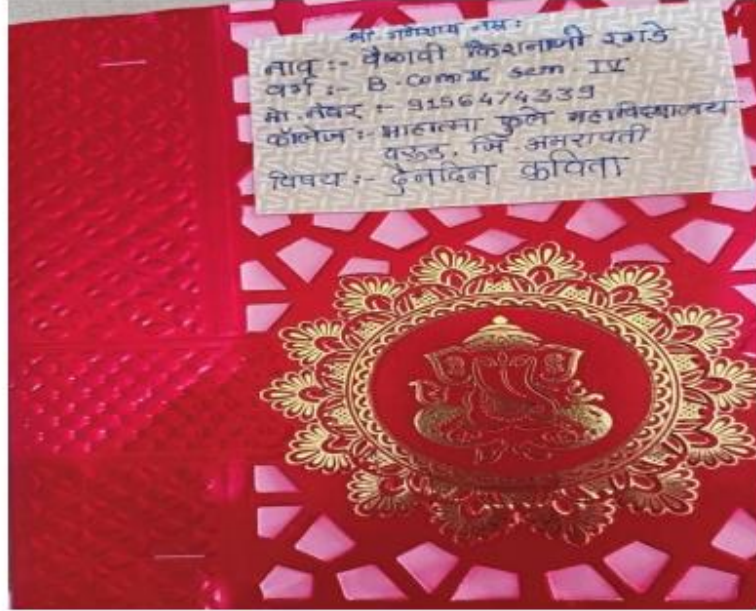 श्री गणेशाय नमः
नाव :- वैष्णवी किसनाजी रगडे
वर्ग :- B.Com II Sem. IV
मो. नंबर :- 9156474339
कॉलेज :- माहात्मा फुले महाविद्यालय
वरुड, जि अमरापती
विषय :- दैनंदिन कविता